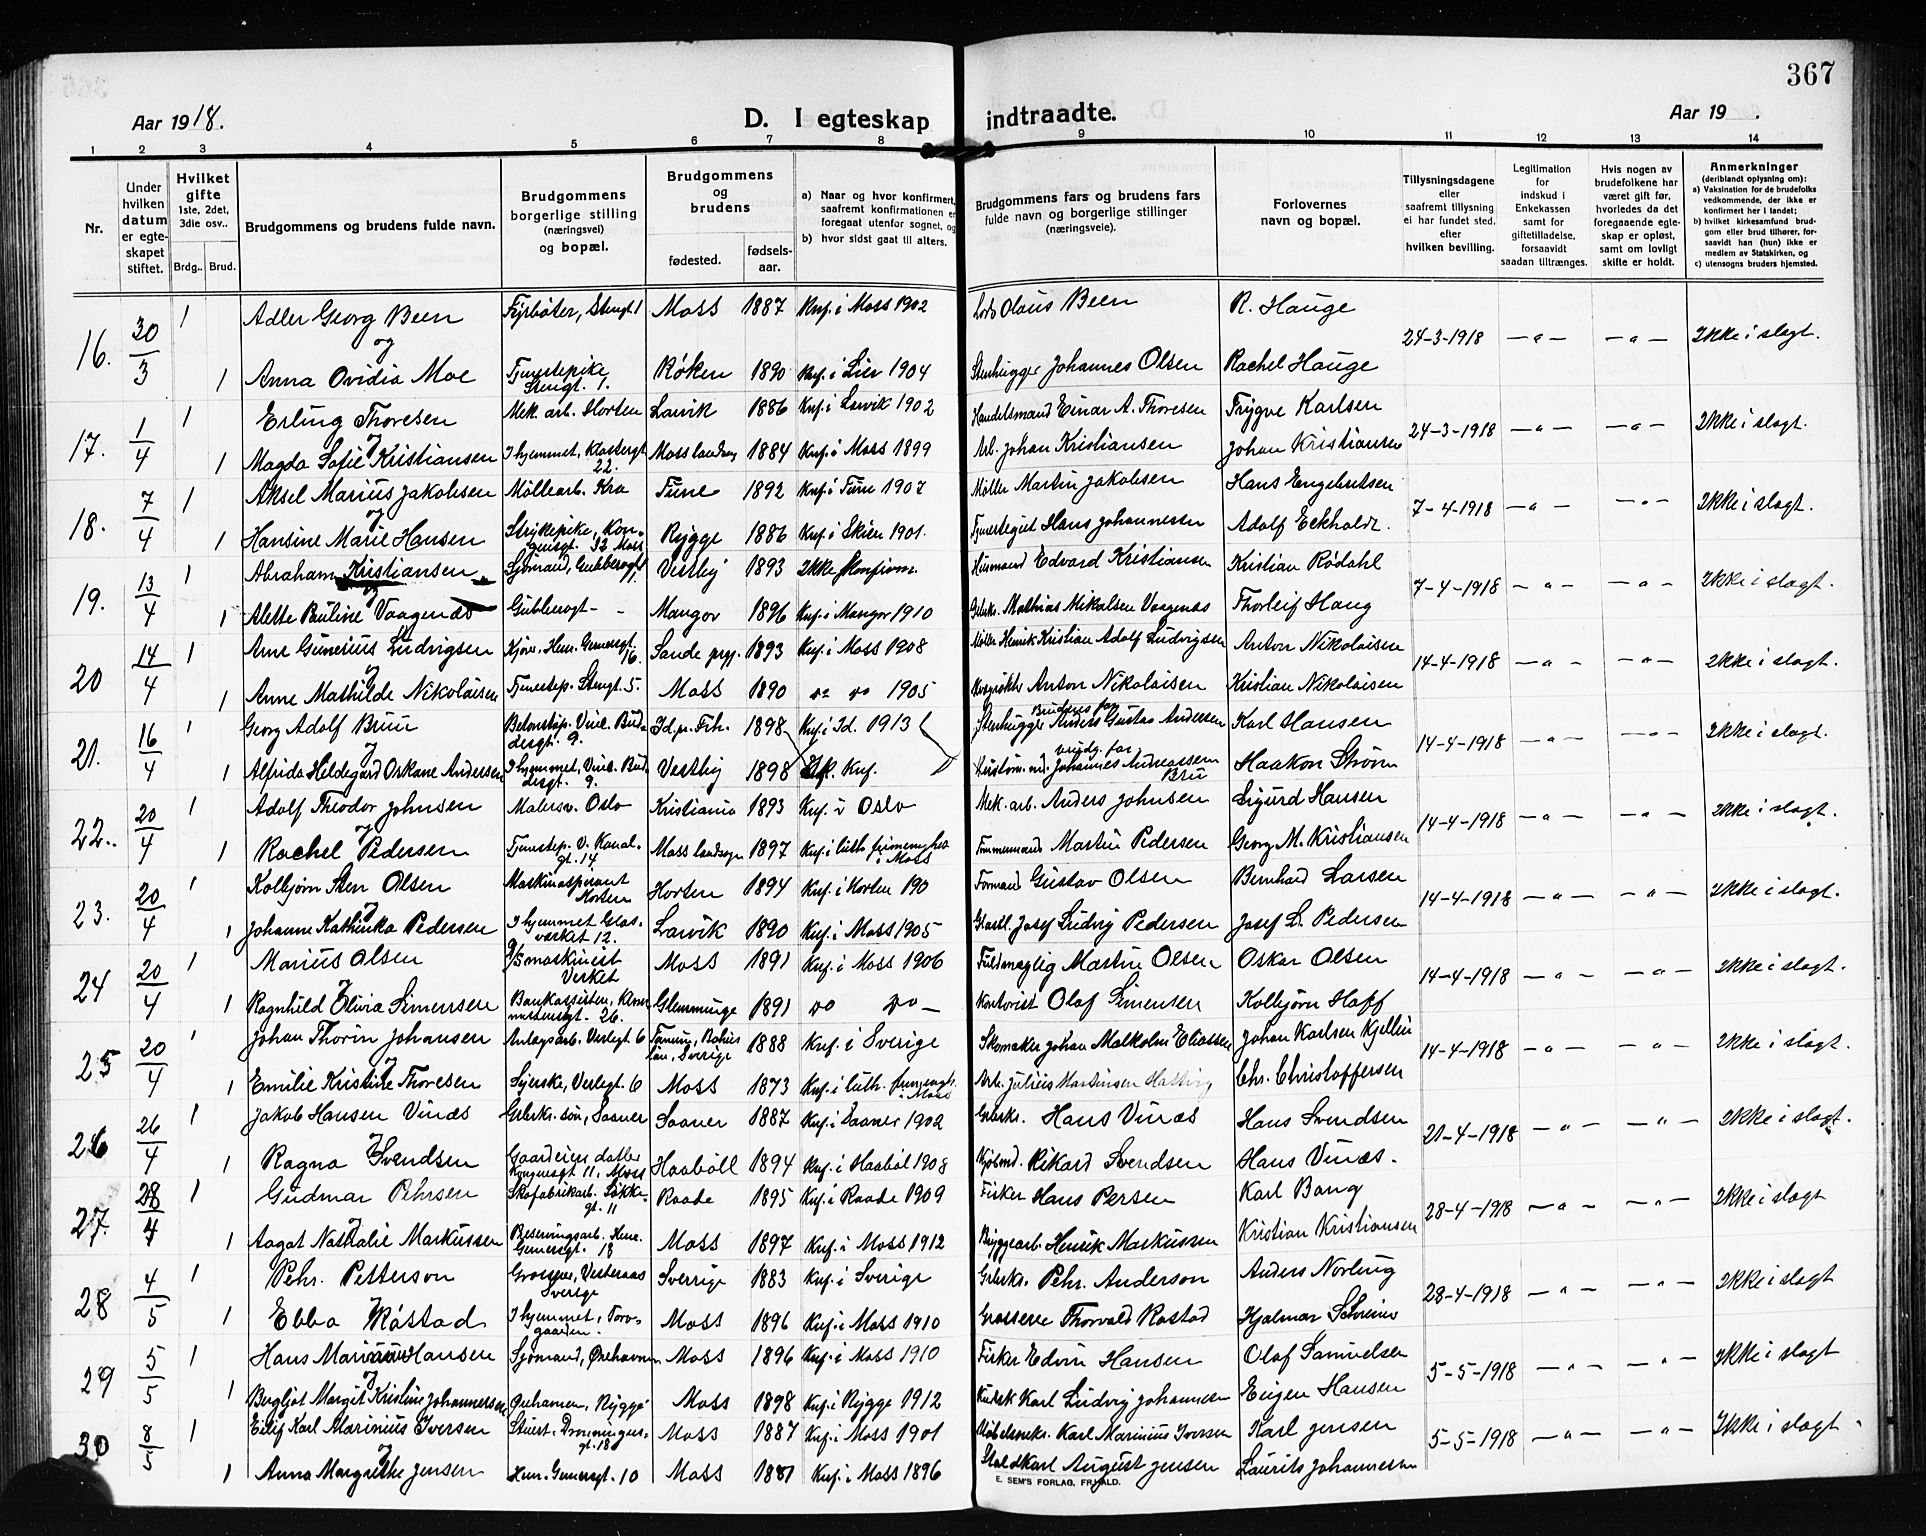 367
Aar 1918. D. I egteskap indtraadte. Aar 19 .
1 2 3 4 5 6 7 8 9 10 11 12 13 14
Nr.
Under hvilken datum er egteskapet stiftet.
Hvilket gifte 1ste, 2det, 3die osv..
Brdg.. Brud.
Brudgommens og brudens fulde navn.
Brudgommens borgerlige stilling (næringsvei) og bopæl.
Brudgommens og brudens
fødested.
fødsels-aar.
a) Naar og hvor konfirmert, saafremt konfirmationen er foregaat utenfor sognet, og
b) hvor sidst gaat til alters.
Brudgommens fars og brudens fars fulde navn og borgerlige stillinger (næringsveie).
Forlovernes navn og bopæl.
Tillysningsdagene eller saafremt tillysning ei har fundet sted, efter hvilken bevilling.
Legitimation for indskud i Enkekassen samt for giftetilladelse, forsaavidt saadan tiltrænges.
Hvis nogen av brudefolkene har været gift før, hvorledes da det foregaaende egteskap er opløst, samt om lovligt skifte er holdt.
Anmerkninger (deriblandt oplysning om):
a) Vaksination for de brudefolks vedkommende, der ikke er konfirmert her i landet;
b) hvilket kirkesamfund brudgom eller brud tilhører, forsaavidt han (hun) ikke er medlem av Statskirken, og
c) utensogns bruders hjemsted.
16. 30/3 1 Adler Georg Been Fyrbøter, Stengt 1 Moss 1887 Knf. i Moss 1902 Lods Olaus Been R. Hauge 24-3-1918 — " — — " — Ikke i slegt.
og
1 Anna Ovidia Moe Tjenestepike Stengt. 1. Røken 1890 Knf. i Lier 1904 Stenhugger Johannes Olsen Rachel Hauge
17. 1/4 1 Erling Thoresen Mek. arb. Horten Larvik 1886 Knf. i Larvik 1902 Handelsmand Einar A. Thoresen Trygve Karlsen 24-3-1918 — " — — " — Ikke i slegt.
1 Magda Sofie Kristiansen I hjemmet, Klostergt 22. Moss landsog 1884 Knf. i Moss 1899 Arb. Johan Kristiansen Johan Kristiansen
18. 7/4 1 Aksel Marius Jakobsen Møllearb. Kra Tune 1892 Knf. i Tune 1907 Møller Martin Jakobsen Hans Engebretsen 7-4-1918 — " — — " — Ikke i slegt.
1 Hansine Marie Hansen Strykepike, Kongensgt. 32 Moss Rygge 1886 Knf. i Skien 1901. Hans Johannesen Adolf Eckholdt.
19. 13/4 1 Abraham Kristiansen Sjømand, Vestby 1893 Ikke konfirm. Husmand Edvard Kristiansen Kristian Rødahl 7-4-1918 — " — — " — Ikke i slegt.
1 Alette Pauline Vaagenæs Mangor 1896 Knf. i Mangor 1910 Grbrkr. Mathias Mikalsen Vaagenæs Thorleif Haug
20 14/4 1 Arne Gunerius Ludvigsen Kjøre. Hen. Gernersgt. 16. Sande prgj. 1893 Knf. i Moss 1908 Møller Henrik Kristian Adolf Ludvigsen Anton Nikolaisen 14-4-1918 — " — — " — Ikke i slegt.
1 Anne Mathilde Nikolaisen Tjenestep. Stengt. 5. Moss 1890 do do 1905 Anton Nikolaisen Kristian Nikolaisen
21. 16/4 1 Georg Adolf Bruu Id. pr. Frh. 1898 Knf. i Id. 1913 Brudens far Stenhugger Anders Gustav Andersen Karl Hansen 14-4-1918 — " — — " — Ikke i slegt.
1 Alfrida Hildegard Orkane Andersen I hjemmet, Vinc. Buddesgt. 9. Vestby 1898 Knf. brudg. far Johannes Andreassen Bru Haakon Strøm
22. 20/4 1 Adolf Theodor Johnsen Malersv. Oslo Kristiania 1893 Knf. i Oslo Mek. arb. Anders Johnsen Sigurd Hansen 14-4-1918 — " — — " — Ikke i slegt.
1 Rachel Pedersen Tjenestep. V. Kanalgt. 14 Moss landsogn 1897 Knf. i luth. frimenighed i Moss Tømmermand Martin Pedersen Georg M. Kristiansen
23. 20/4 1 Kolbjørn Sten Olsen Maskinaspirant Horten Horten 1894 Knf. i Horten 190 Formand Gustav Olsen Bernhard Larsen 14-4-1918 — " — — " — Ikke i slegt.
1 Johanne Kathinka Pedersen I hjemmet Glasverket 12. Larvik 1890 Knf. i Moss 1905 Josef Ludvig Pedersen Josef L. Pedersen
24 20/4 1 Marius Olsen maskinist Verket Moss 1891 Knf. i Moss 1906 Fuldmægtig Martin Olsen Oskar Olsen 14-4-1918 — " — — " — Ikke i slegt.
1 Ragnhild Elivia Simensen Bankassisten, 26. Glemminge 1891 do do — Kontorist Olaf Simensen Kolbjørn Hoff
25 20/4 1 Johan Thorin Johansen Anlægsarb. Verlegt 6 Tanum, Bohus län, Sverige 1888 Knf. i Sverige Skomaker Johan Malkolm Eliassen Johan Karlsen Kjellin 14-4-1918 — " — — " — Ikke i slegt.
1 Emilie Kristine Thoresen Syerske, Verlegt. 6 Moss 1873 Knf. i luth. frimenigh. i Moss Arb. Julius Martinsen Chr. Christoffersen
26 26/4 1 Jakob Hansen Vinæs Grbrkr. søn, Saaner Saaner 1887 Knf. i Saaner 1902 Grbrkr. Hans Vinæs Hans Svendsen 21-4-1918 — " — — " — Ikke i slegt.
1 Ragna Svendsen Gaardeiers datter Kongensgt 11, Moss Haabøll 1894 Knf. i Haabøl 1908 Kjøbmd. Rikard Svendsen Hans Vinæs.
27. 28/4 1 Gudmar Pehrsen Skofabrikarb. Løkkegt. 11 Raade 1895 Knf. i Raade 1909 Fisker Hans Persen Karl Bang 28-4-1918 — " — — " — Ikke i slegt
1 Aagot Nathalie Markussen Hen. Gernersgt. 18 Moss 1897 Knf. i Moss 1912 Bryggearb. Henrik Markussen Kristian Kristiansen
28 4/5 1 Pehr. Petterson Grosserer, Vesteraas Sverige Sverrige 1883 Knf. i Sverige Grbrkr. Pehr. Anderson Anders Norling 28-4-1918 — " — — " — Ikke i slegt
1 Ebba Røstad I hjemmet, Torvgaarden. Moss 1896 Knf. i Moss 1910 Grosserer Thorvald Røstad Hjalmar
29 5/5 1 Hans Marinius Hansen Sjømand, Ørehavnen Moss 1896 Knf. i Moss 1910 Fisker Edvin Hansen Olaf Samuelsen 5-5-1918 — " — — " — Ikke i slegt
1 Bergljot Margit Kristine Johannersen Ørehavnen, Rygge Moss 1898 Knf. i Rygge 1912 Karl Ludvig Johannesen Eugen Hansen
30 8/5 1 Eilif Karl Marinius Iversen Stuert. Dronningensgt. 18 Moss 1887 Knf. i Moss 1901 Møbelsnekr. Karl Marinius Iversen Karl Jensen 5-5-1918 — " — — " — Ikke i slegt
1 Anna Margrethe Jensen Hen. Gernersgt. 10 Moss 1881 Knf. i Moss 1896 Staldkarl August Jensen Laurits Johannesen
E. SEM'S FORLAG, FR.HALD.